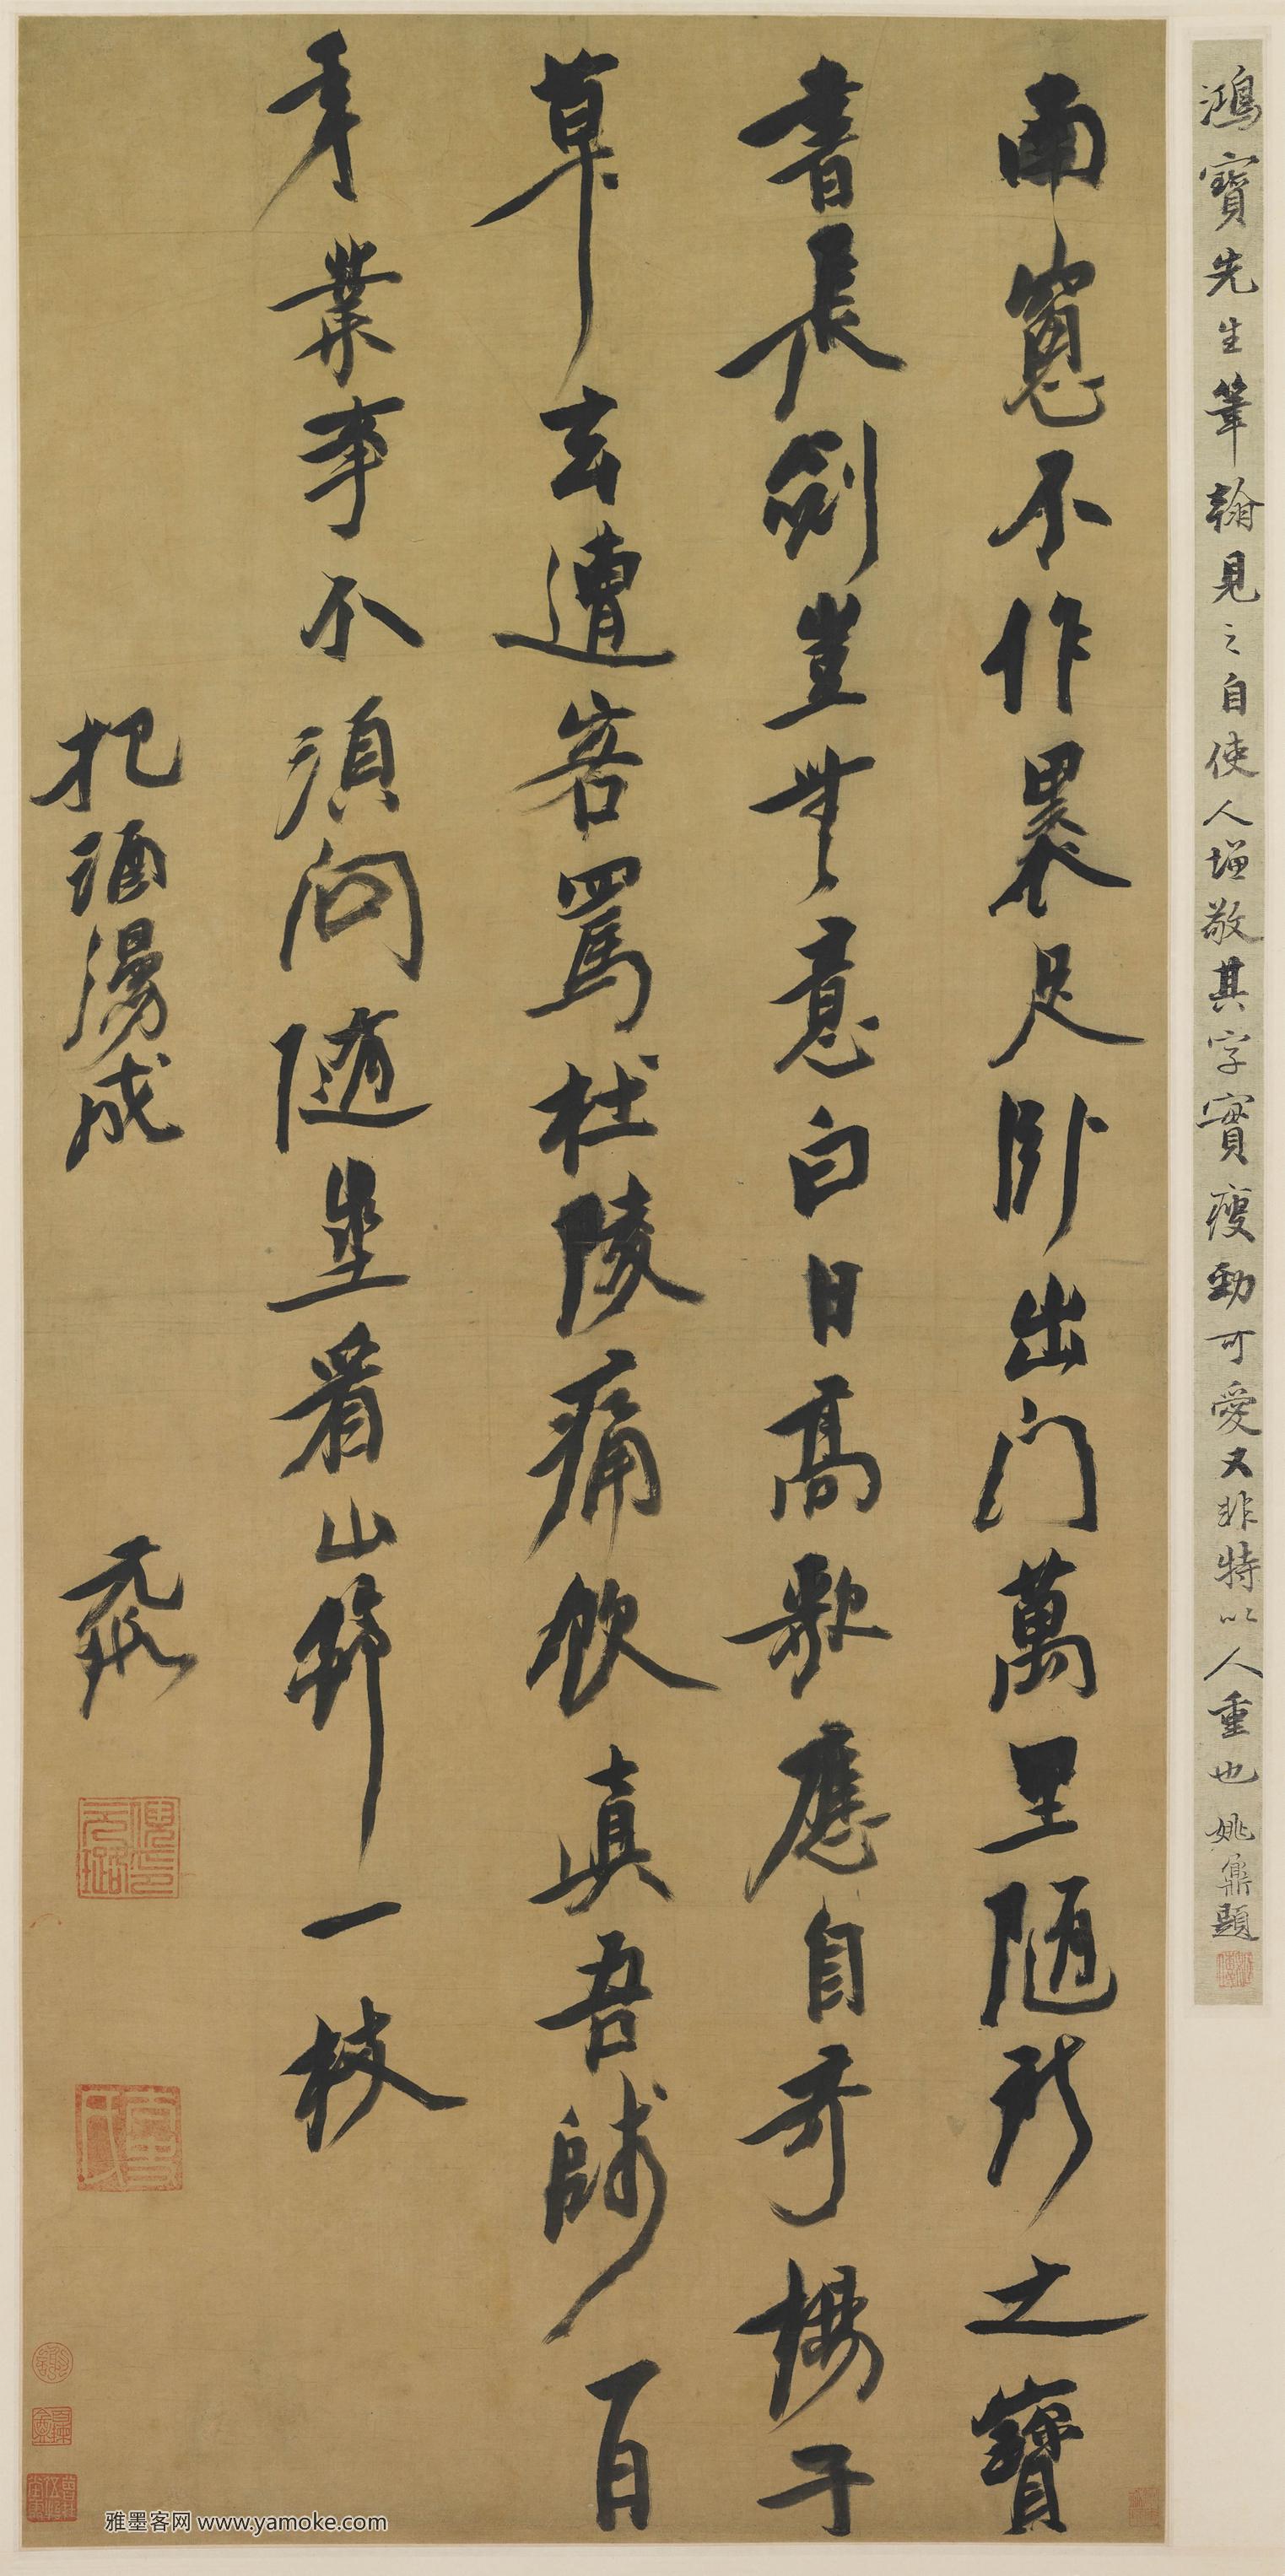 鴻寶先生筆翰見之自使人增敬其字實瘦勁可愛又非特以人重也 姚鼐題
南窻不作累足卧出門萬里隨所之寶
書長劍豈無意白日高歌應自奇楊子
草玄遭客罵杜陵痛飲真吾師百
年業事不須問隨坐看山筇一枝
把酒漫成 元璐
倪元璐印
雅墨客网 www.yamoke.com